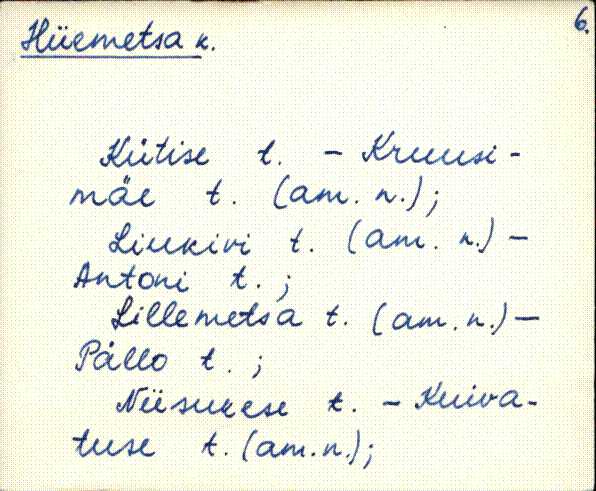 6.
Hüemetsa k.
Kütise t. - Kruusi-
mäe t. (am. n.);
Liukivi t. (am. n.) -
Antoni t. ;
Lillemetsa t. (am. n.) -
Pällo t. ;
Niisukese t. - Kuiva-
tuse t. (am. n.);